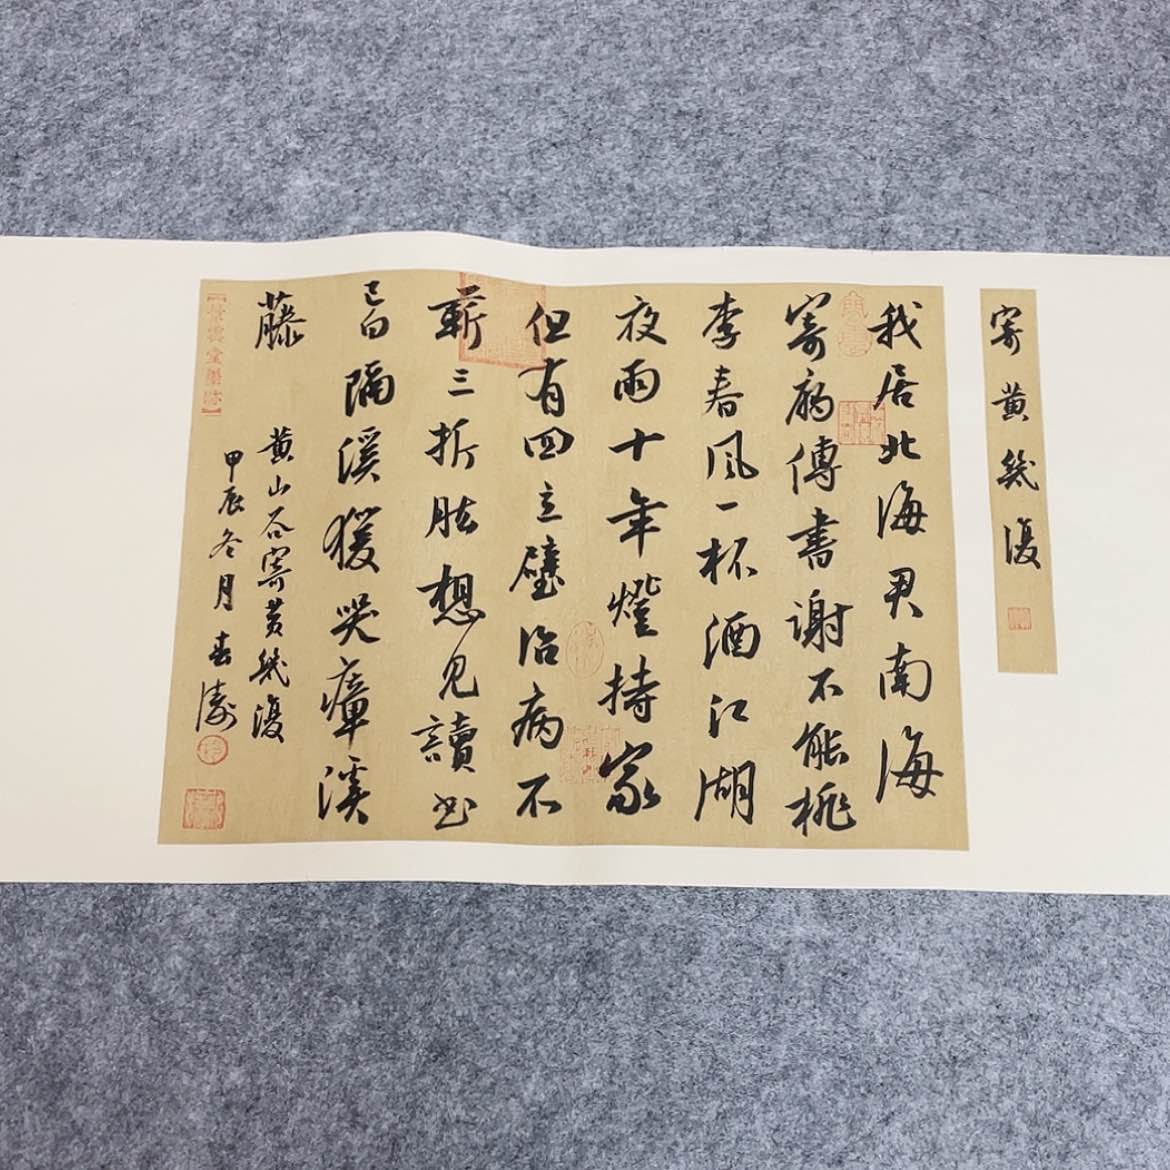 寄黄幾復
我居北海君南海
寄雁傳書謝不能桃
李春風一杯酒江湖
夜雨十年燈持家
但有四立壁治病不
蘄三折肱想見讀書
已白隔溪猨哭瘴溪
藤
黄山谷寄黄幾復
甲辰冬月春濤